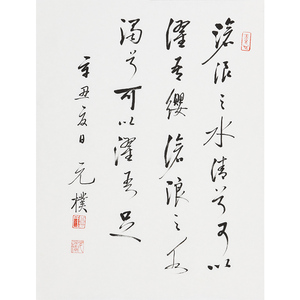 滄浪之水清兮可以
濯吾纓滄浪之水
濁兮可以濯吾足
辛丑夏日 元樸